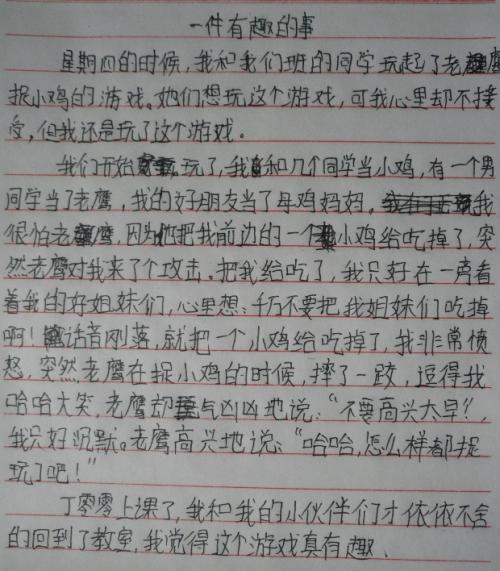 一件有趣的事
星期四的时候，我和我们班的同学玩起了老鹰
捉小鸡的游戏。她们想玩这个游戏，可我心里却不接
受，但我还是玩了这个游戏。
我们开始玩了，我和几个同学当小鸡，有一个男
同学当了老鹰，我的好朋友当了母鸡妈妈，我
很怕老鹰，因为他把我前边的一个小鸡给吃掉了，突
然老鹰对我来了个攻击，把我给吃了，我只好在一旁看
着我的好姐妹们，心里想：千万不要把我姐妹们吃掉
啊！话音刚落，就把一个小鸡给吃掉了，我非常愤
怒，突然，老鹰在捉小鸡的时候，摔了一跤，逗得我
哈哈大笑，老鹰却气凶凶地说：“不要高兴太早？，
我只好沉默。老鹰高兴地说：“哈哈，怎么样都捉
玩了吧！”
丁零零上课了，我和我的小伙伴们才依依不舍
的回到了教室，我觉得这个游戏真有趣、